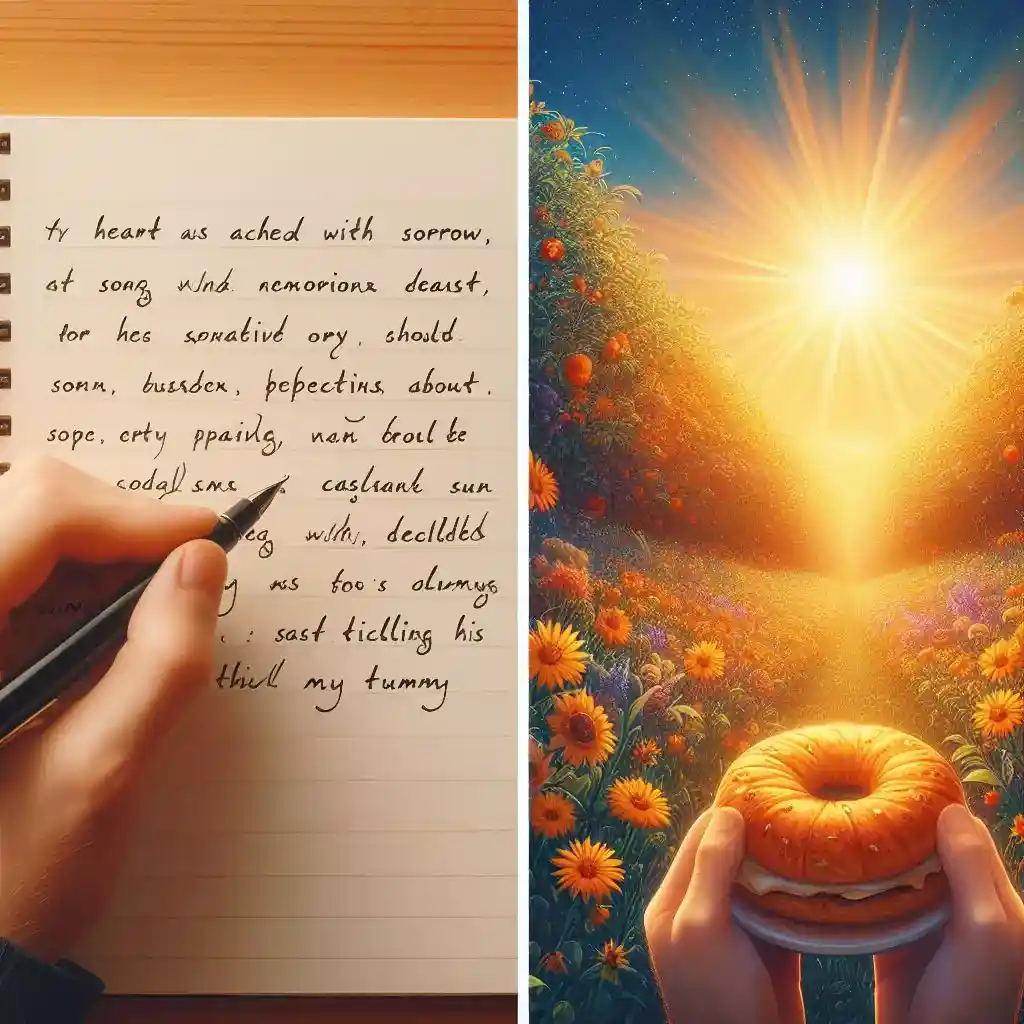 ty heart as ached with sorrow,
at song whd. nemorione deaist,
for hes sonative ory, should.
sonn, bussdex, pepectins about.
sope, erty ppaivlg, nan broul be
codal sme casliant sun
eg with, declided
y as foo's olumys
. : sast ticlling his
thicl my tummy